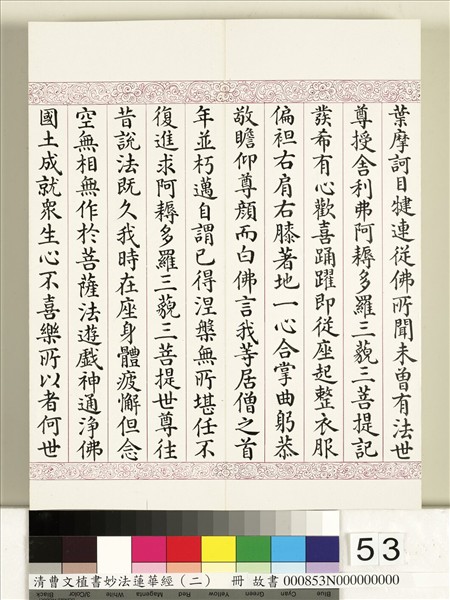 葉摩訶目犍連從佛所聞未曾有法世
尊授舍利弗阿耨多羅三藐三菩提記
發希有心歡喜踊躍即從座起整衣服
偏袒右肩右膝著地一心合掌曲躬恭
敬瞻仰尊顏而白佛言我等居僧之首
年並朽邁自謂已得涅槃無所堪任不
復進求阿耨多羅三藐三菩提世尊往
昔說法既久我時在座身體疲懈但念
空無相無作於菩薩法遊戲神通淨佛
國土成就眾生心不喜樂所以者何世
53
Black 3/Color White Magenta Red Yellow Green Cyan Blue
清曹文埴書妙法蓮華經(二) 冊 故書 000853N000000000